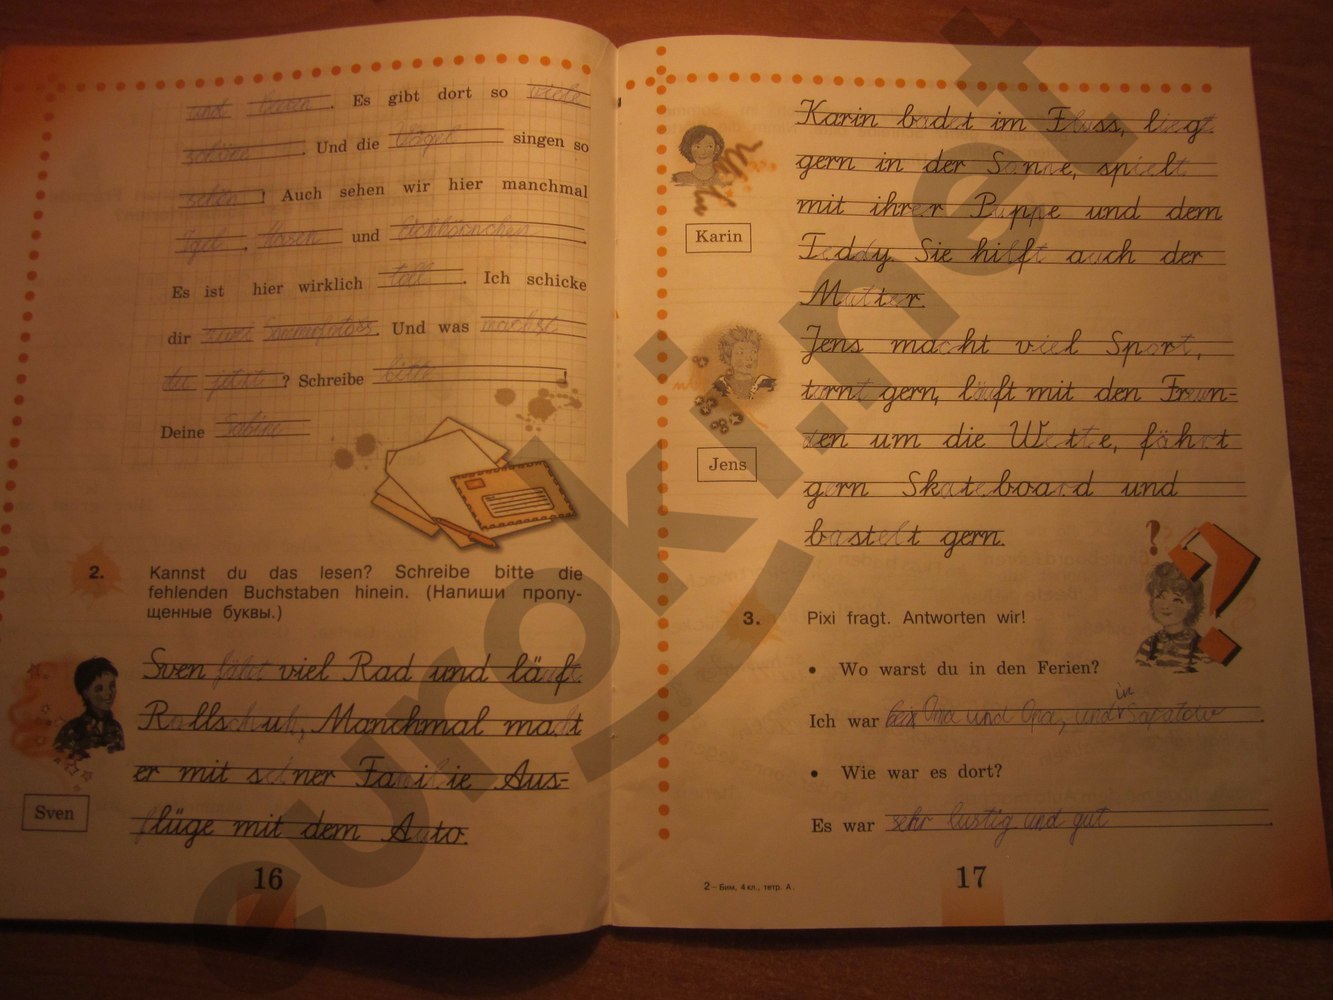 und lesen. Es gibt dort so viele
schöne. Und die Vögel singen so
schön! Auch sehen wir hier manchmal
Igel, Hasen und Eichhörnchen.
Es ist hier wirklich toll. Ich schicke
dir zwei Sommerfotos. Und was machst
du jetzt? Schreibe bitte!
Deine Sabine
2. Kannst du das lesen? Schreibe bitte die
fehlenden Buchstaben hinein. (Напиши пропу-
щенные буквы.)
Sven fährt viel Rad und läuft
Rollschuh, Manchmal macht
er mit seiner Familie Aus-
flüge mit dem Auto.
Sven
16
Karin badet im Fluss, liegt
gern in der Sonne, spielt
mit ihrer Puppe und dem
Teddy. Sie hilft auch der
Mutter.
Karin
Jens macht viel Sport,
turnt gern, läuft mit den Freun-
den um die Wette, fährt
gern Skateboard und
bastelt gern.
Jens
3. Pixi fragt. Antworten wir!
• Wo warst du in den Ferien?
Ich war bei Oma und Opa, und in Saratow.
• Wie war es dort?
Es war sehr lustig und gut.
2 – Бим, 4 кл., тетр. А.
17
euroki.net